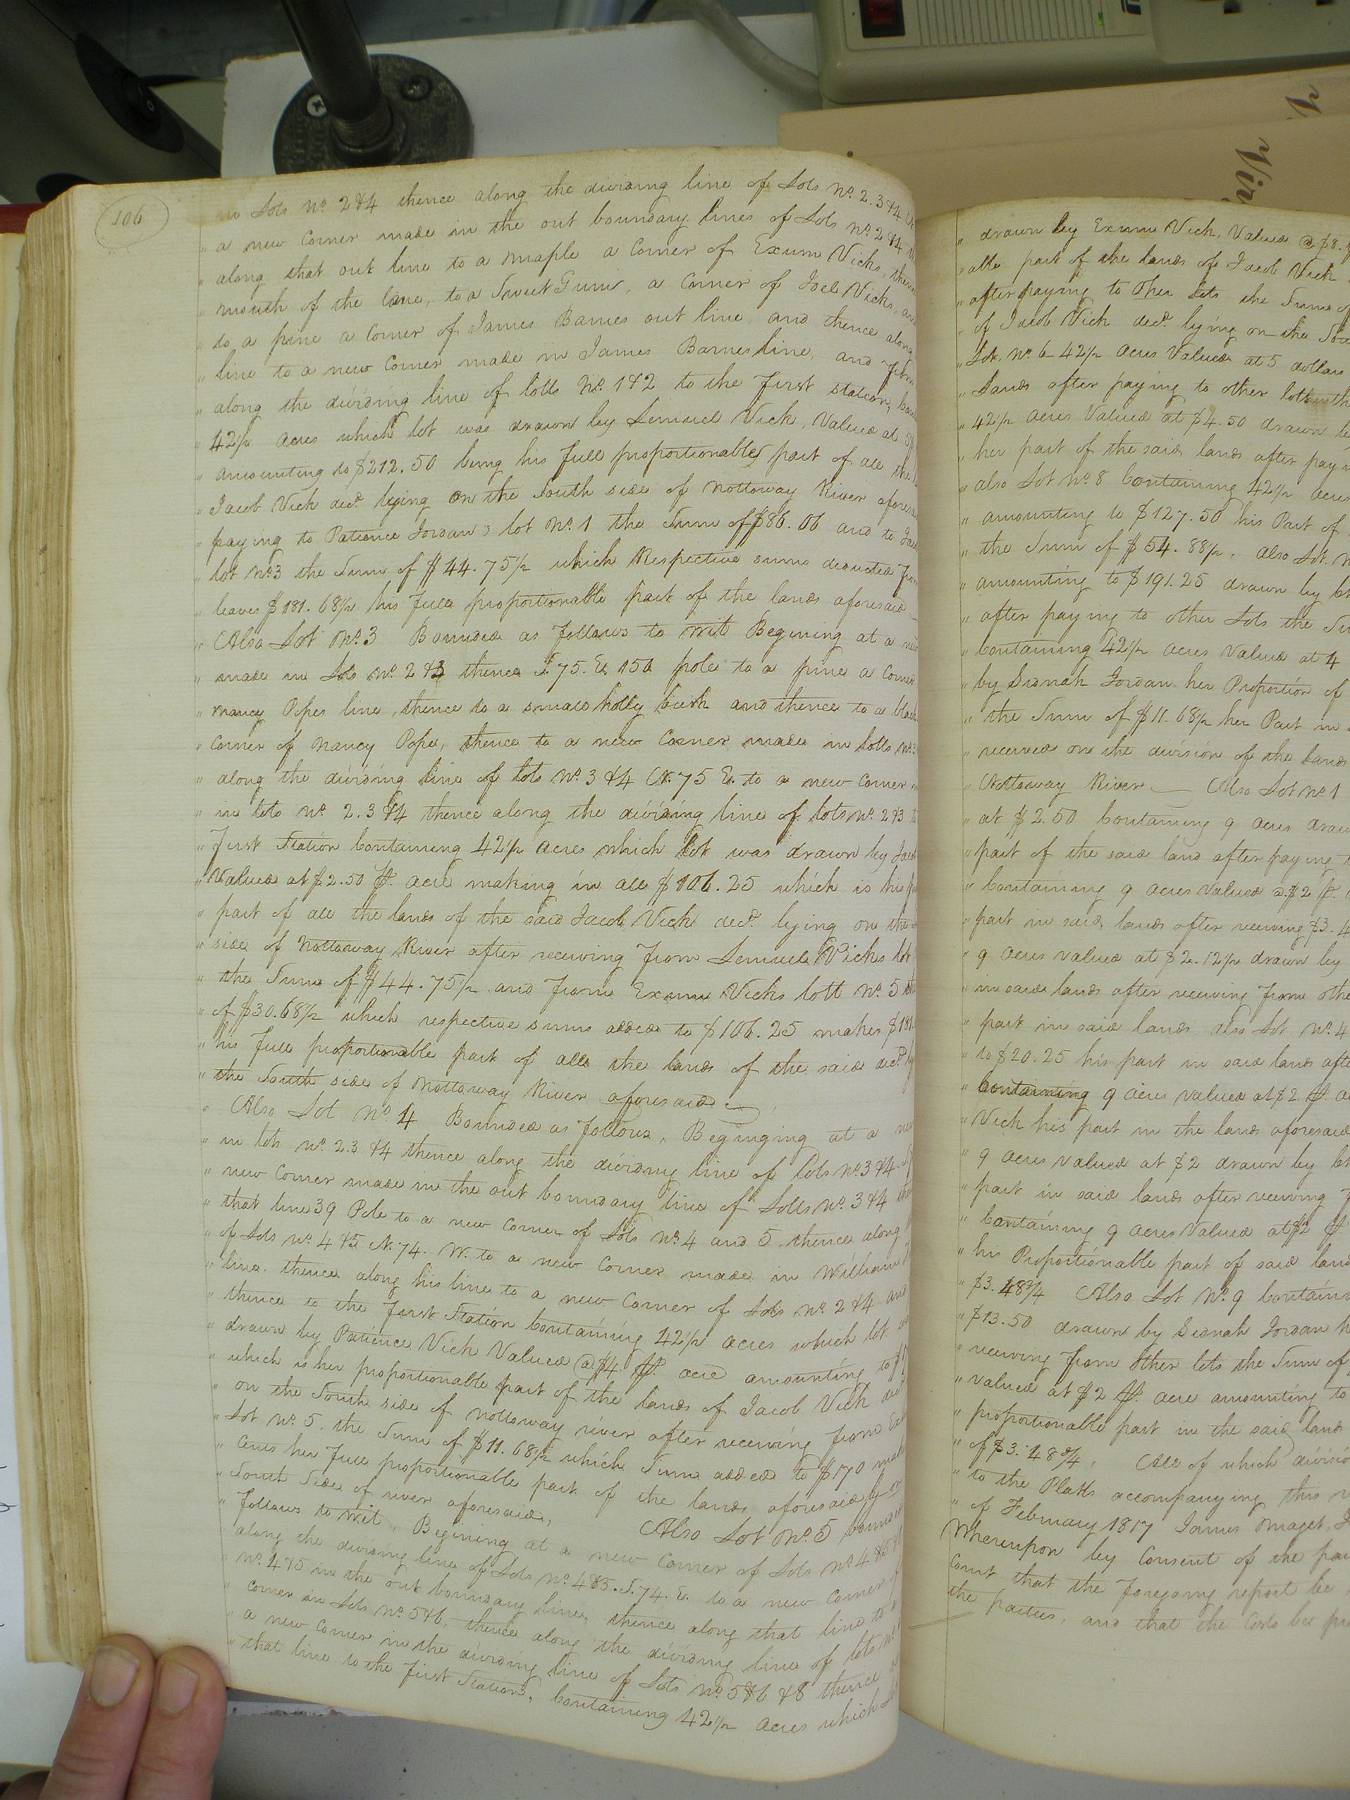 106
in Lots No. 2 & 4 thence along the dividing line of Lots No. 2. 3 & 4
" a new Corner made in the out boundary lines of Lots No. 2 & 4
" along that out line to a maple a Corner of Exum Vicks, thence
" mouth of the lane, to a Sweet Gum, a Corner of Joel Vicks,
" to a pine a Corner of James Barnes out line and thence along
" line to a new Corner made in James Barnes line, and from
" along the dividing line of lotts No. 1 & 2 to the first station,
" 42½ acres which lot was drawn by Lemuel Vick, Valued at
" amounting to $212.50 being his full proportionable part of all the
" Jacob Vick decd. lying on the South side of Nottoway River
" paying to Patience Jordan's lot No. 1 the Sum of $86.06 and to
" lot No. 3 the Sum of $44.75½ which Respective sums deducted from
" leaves $81.68½ his full proportionable part of the lands aforesaid
" Also Lot No. 3 Bounded as follows to wit Begining at a
" made in Lots No. 2 & 3 thence S. 75. E. 150 poles to a pine a Corner
" Nancy Popes line, thence to a small holly bush and thence to a
" Corner of Nancy Pope, thence to a new Corner made in Lotts
" along the dividing line of lots No. 3 & 4 N. 75 E. to a new Corner
" in lots No. 2. 3 & 4 thence along the dividing line of lots No. 2 & 3
" First Station Containing 42½ acres which lot was drawn by
" Valued at $2.50 pr. acre making in all $106.25 which is his
" part of all the lands of the said Jacob Vick decd. lying on the
" side of Nottoway River after receiving from Lemuel Vicks lot
" the Sum of $44.75½ and from Exum Vicks lott No. 5
" of $30.68½ which respective sums added to $106.25 makes
" his full proportionable part of all the lands of the said decd.
" the South side of Nottoway River aforesaid.
" Also Lot No. 4 Bounded as follows, Begining at a
" in lots No. 2.3 & 4 thence along the dividing line of Lots No. 3 & 4
" new Corner made in the out boundary line of Lotts No. 3 & 4
" that line 39 Pole to a new Corner of Lots No. 4 and 5 thence along
" of Lots No. 4 & 5 N. 74. W. to a new Corner made in William
" line. thence along his line to a new Corner of Lots No. 2 & 4 and
" thence to the first Station Containing 42½ acres which lot
" drawn by Patience Vick Valued @ $4 pr. acre amounting to
" which is her proportionable part of the lands of Jacob Vick
" on the South side of Nottoway river after receiving from
" Lot No. 5. the Sum of $11.68½ which Sum added to $170
" Cents her full proportionable part of the lands aforesaid
" South Side of river aforesaid, Also Lot No. 5
" follows to wit, Begining at a new Corner of Lots No. 4
" along the dividing line of Lots No. 4 & 5. S. 74. E. to a new Corner
" No. 4 & 5 in the out boundary line, thence along that line to
" corner in Lots No. 5 & 6 thence along the dividing line of lots
" a new Corner in the dividing line of Lots No. 5 & 6 & 8 thence
" that line to the first Station, Containing 42½ acres which
" drawn by Exum Vick, Valued @ $8.
" all part of the lands of Jacob Vick
" after paying to Other Lots the Sum of
" of Jacob Vick decd. lying on the
" Lot No. 6 42½ acres Valued at 5 dollars
" lands after paying to other lotts
" 42½ acres Valued at $4.50 drawn
" her part of the said lands after
" also Lot No. 8 Containing 42½ acres
" amounting to $127.50 his Part of
" the Sum of $54.88½. also Lot
" amounting to $191.25 drawn by
" after paying to other Lots the
" Containing 42½ acres Valued at 4
" by Sisnah Jordan her Proportion of
" the Sum of $11.68½ her Part in
" received on the division of the lands
" Nottoway River — Also Lot No. 1
" at $2.50 Containing 9 acres
" part of the said land after paying
" Containing 9 acres Valued @ $2
" part in said lands after receiving $3.
" 9 acres valued at $2.12½ drawn by
" in said lands after receiving from
" part in said lands also Lot No. 4
" to $20.25 his part in said lands
" Containing 9 acres valued at $2 pr.
" Vick his part in the lands aforesaid
" 9 acres valued at $2 drawn by
" part in said lands after receiving
" Containing 9 acres Valued at $2 pr.
" his Proportionable part of said
" $3.48¾ Also Lot No. 9
" $13.50 drawn by Sisnah Jordan
" receiving from other lots the Sum of
" valued at $2 pr. acre amounting to
" proportionable part in the said land
" of $3.48¾, All of which
" to the Platts accompanying this
" of February 1817 James Maget,
Whereupon by Consent of the
Court that the foregoing report be
the parties, and that the Costs be